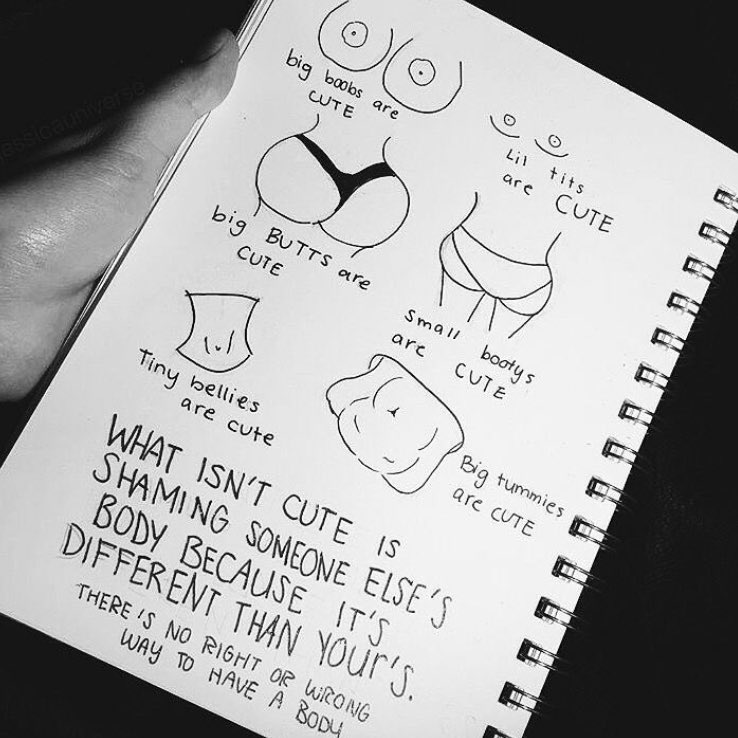 big boobs are
CUTE
Lil tits
are CUTE
big BUTTS are
CUTE
Small bootys
are CUTE
Tiny bellies
are cute
Big tummies
are CUTE
WHAT ISN'T CUTE IS
SHAMING SOMEONE ELSE'S
BODY BECAUSE IT'S
DIFFERENT THAN YOUR'S.
THERE IS NO RIGHT OR WRONG
WAY TO HAVE A BODY